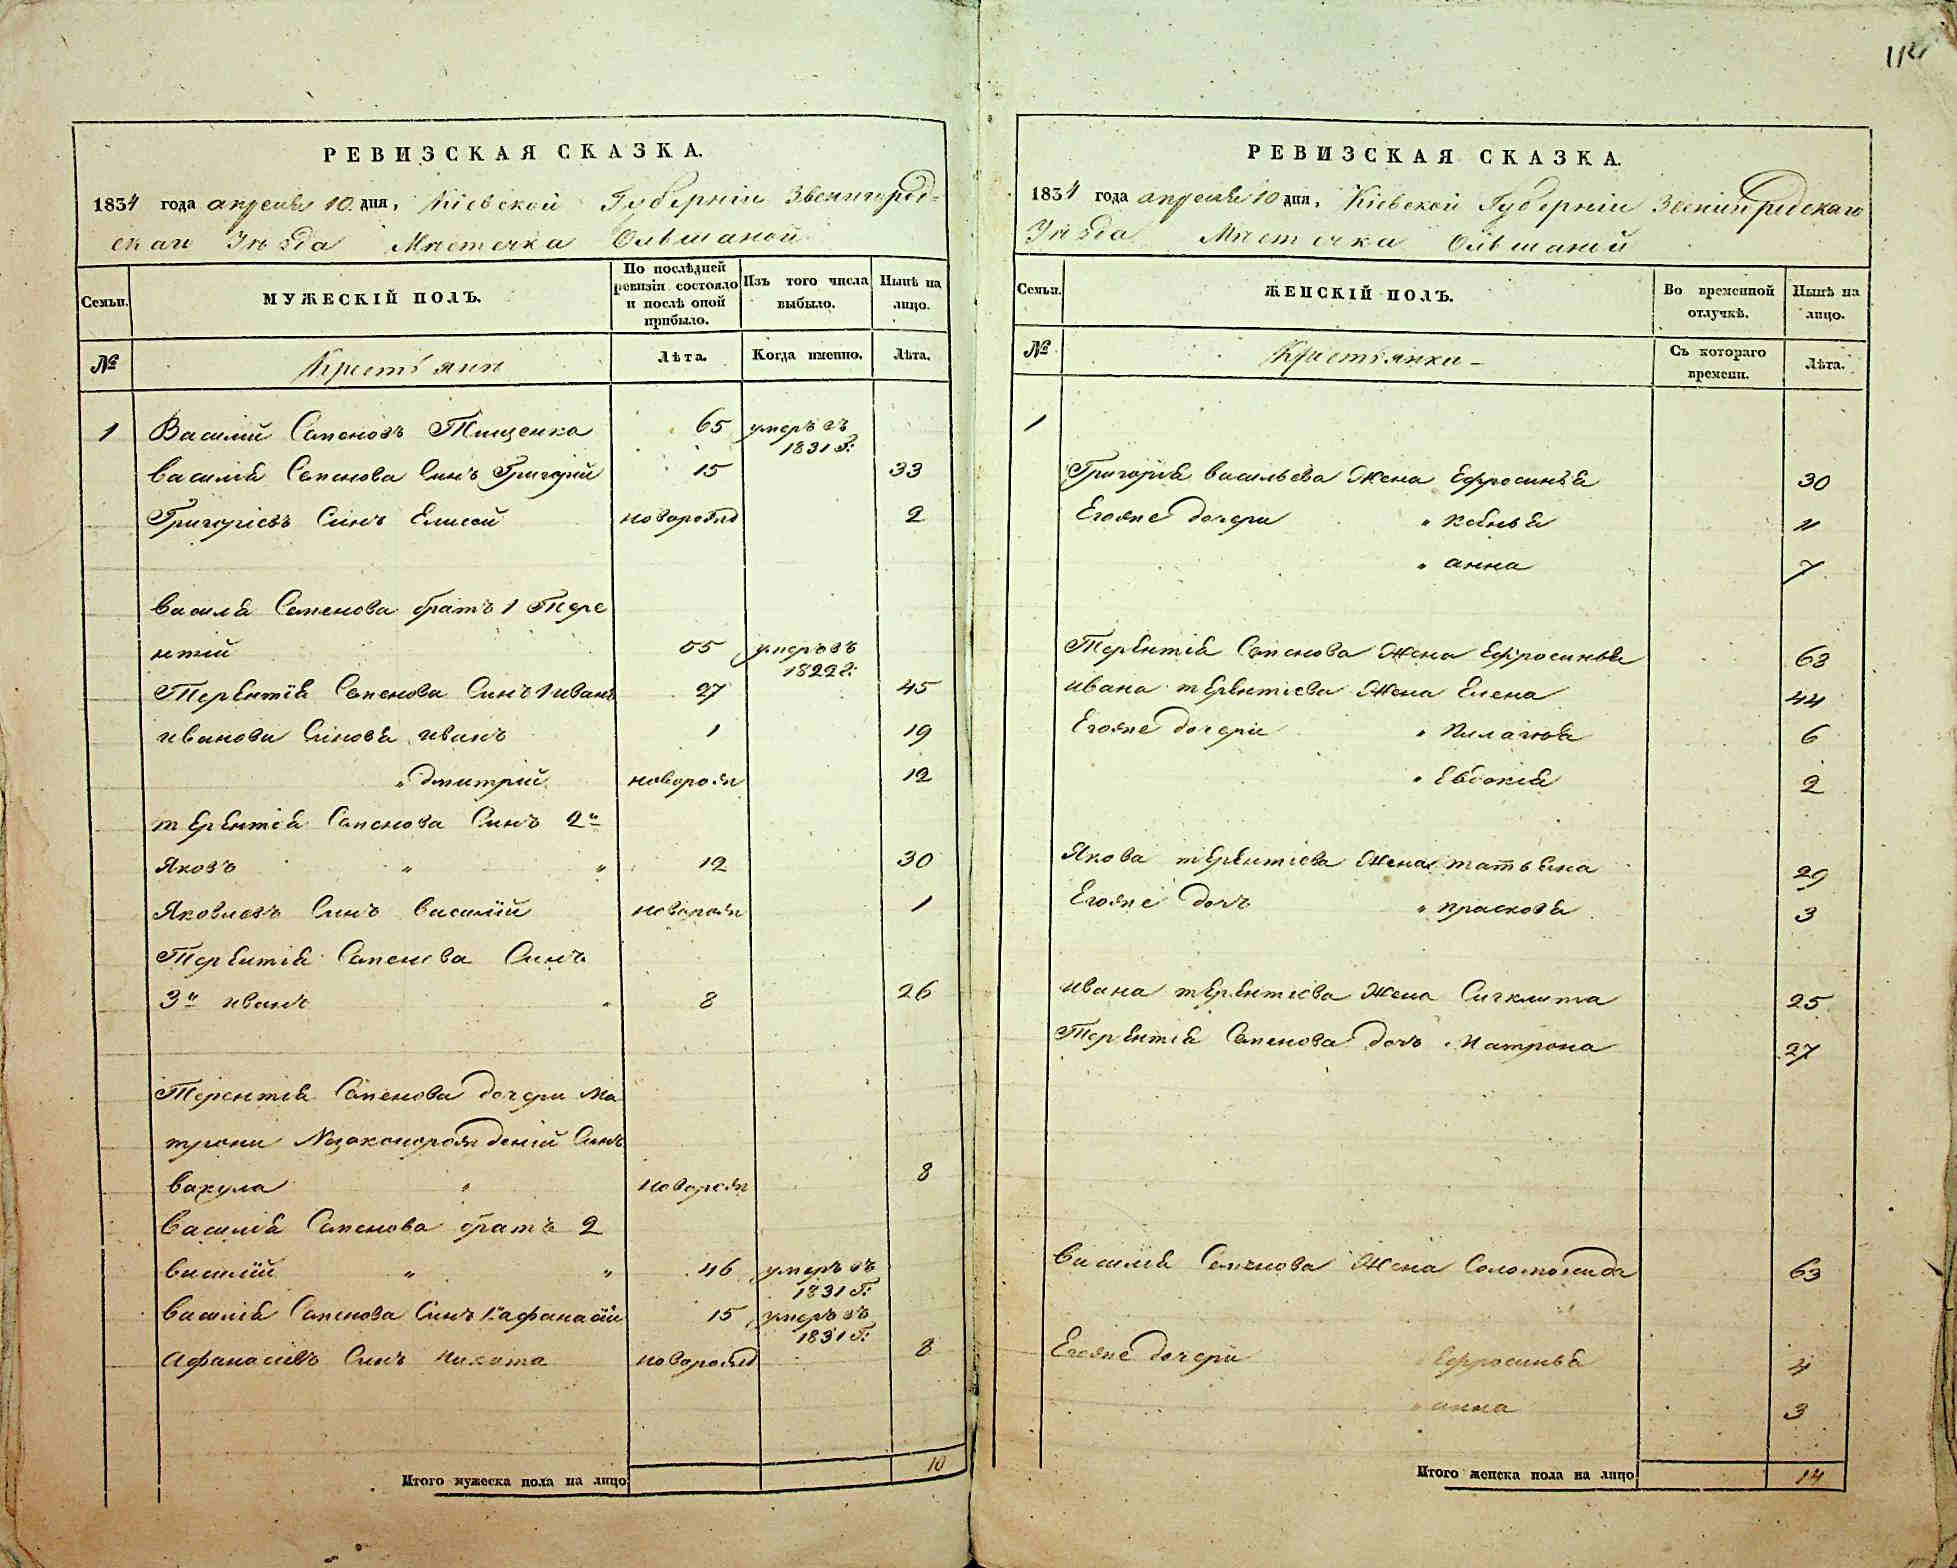 112
РЕВИЗСКАЯ СКАЗКА.
1834 года апреля 10 дня, Кіевской Губерніи Звенигород-
скаго Уѣзда Мѣстечка Ольшаной
Семьи. МУЖЕСКІЙ ПОЛЪ. По послѣдней ревизіи состояло и послѣ оной прибыло. Изъ того числа выбыло. Нынѣ на лицо.
№ Крестьяни Лѣта. Когда именно. Лѣта.
1 Василий Семеновъ Тищенко 65 умеръ въ 1831 г:
Василія Семенова Синъ Григорій 15 33
Григоріевъ Синъ Елисей новорожд 2
Василя Семенова братъ 1 Тере
нтий 55 умеръ въ 1822 г:
Терентія Семенова Синъ 1 иванъ 27 45
иванова Синовя иванъ 1 19
" дмитрій новорож 12
терентія Семенова Синъ 2й
Яковъ " " 12 30
Яковлевъ Синъ Василий новорож 1
Терентія Семенова Синъ
3й иванъ " 8 26
Терентія Семенова дочери Ма
трони Незаконорожденій Синъ
вакула " новорож 8
Василія Семенова братъ 2
василий " " 46 умеръ въ 1831 г:
Василія Семенова Синъ 1й афанасій 15 умеръ въ 1831 г:
Афанасіевъ Синъ Никита новорожд 8
Итого мужеска пола на лицо 10
РЕВИЗСКАЯ СКАЗКА.
1834 года апреля 10 дня, Кіевской Губерніи Звенигородскаго
Уѣзда Мѣстечка Ольшаной
Семьи. ЖЕНСКІЙ ПОЛЪ. Во временной отлучкѣ. Нынѣ на лицо.
№ Крестьянки Съ котораго времени. Лѣта.
1
Григорія Васильева Жена Ефросинія 30
Егожне дочери " Ксѣнья 11
" анна 7
Терентія Семенова Жена Ефросинья 63
ивана терентіева Жена Елена 44
Егожне дочери " Пилагия 6
" Евдокія 2
Якова терентіева Жена татьяна 29
Егожне дочь " прасковя 3
ивана терентіева Жена Сигклита 25
Терентія Семенова дочь Матрона 27
Василія Семенова Жена Соломонида 63
Егожне дочери " Ефросинья 4
" анна 3
Итого женска пола на лицо 14